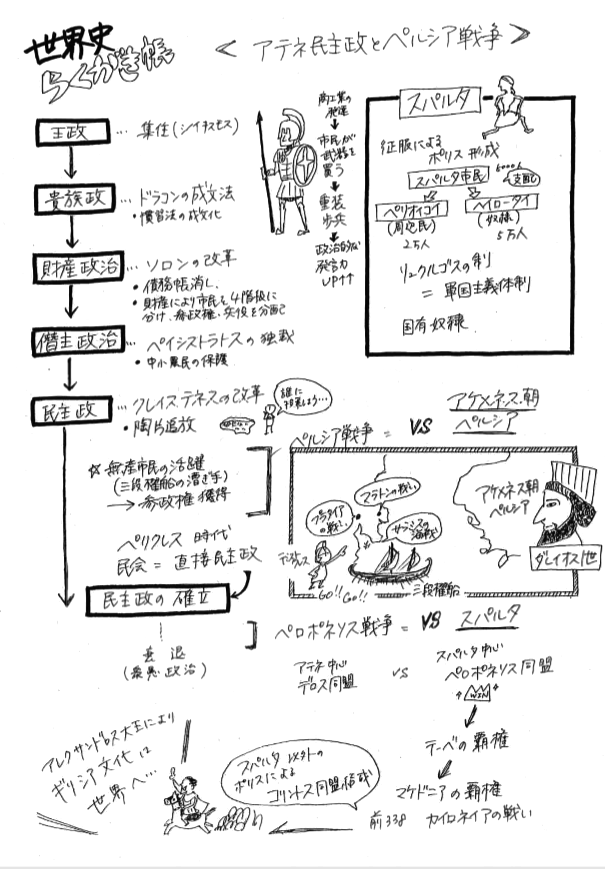 世界史
らくがき帳
＜ アテネ民主政とペルシア戦争 ＞
王政 … 集住(シノイキスモス)
貴族政 … ドラコンの成文法
・慣習法の成文化
財産政治 … ソロンの改革
・債務帳消し
・財産により市民を4階級に
分け、参政権・兵役を分配
僭主政治 … ペイシストラトスの独裁
・中小農民の保護
民主政 … クレイステネスの改革
・陶片追放
誰に
投票しよう…
☆無産市民の活躍
(三段櫂船の漕ぎ手)
→ 参政権獲得
ペリクレス 時代
民会 = 直接民主政
民主政の確立
衰退
(衆愚政治)
商工業の
発達
市民が
武器を
買う
重装
歩兵
政治的な
発言力
UP↑↑
スパルタ
征服による
ポリス形成
スパルタ市民
支配
ペリオイコイ
(周辺民)
2万人
ヘイロータイ
(奴隷)
5万人
リュクルゴスの制
= 軍国主義体制
国有奴隷
ペルシア戦争 = VS アケメネス朝
ペルシア
マラトンの戦い
プラタイア
の戦い
サラミスの
海戦
アケメネス朝
ペルシア
GO!! GO!!
三段櫂船
ダレイオス1世
ペロポネソス戦争 = VS スパルタ
アテネ中心
デロス同盟
vs
スパルタ中心
ペロポネソス同盟
WIN
テーベの覇権
マケドニアの覇権
前338 カイロネイアの戦い
スパルタ以外の
ポリスによる
コリントス同盟結成
アレクサンドロス大王により
ギリシア文化は
世界へ…